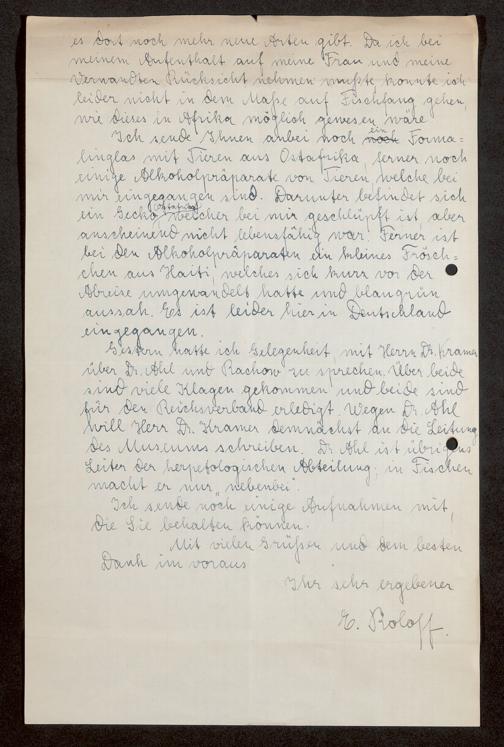 es dort noch mehr neue Arten gibt. Da ich bei
meinem Aufenthalt auf meine Frau und meine
Verwandten Rücksicht nehmen mußte, konnte ich
leider nicht in dem Maße auf Fischfang gehen,
wie dieses in Afrika möglich gewesen wäre.
Ich sende Ihnen anbei noch noch ein Forma=
linglas mit Tieren aus Ostafrika, ferner noch
einige Alkoholpräparate von Tieren welche bei
mir eingegangen sind. Darunter befindet sich
ein Gecko, welcher bei mir geschlüpft ist aber
anscheinend nicht lebensfähig war. Ferner ist
bei den Alkoholpräparaten ein kleines Frösch=
chen aus Haiti, welches sich kurz vor der
Abreise umgewandelt hatte und blaugrün
aussah. Es ist leider hier in Deutschland
eingegangen.
Gestern hatte ich Gelegenheit mit Herrn Dr. Kramer
über Dr. Ahl und Rachow zu sprechen. Über beide
sind viele Klagen gekommen und beide sind
für den Reichsverband erledigt. Wegen Dr. Ahl
will Herr Dr. Kramer demnächst an die Leitung
des Museums schreiben. Dr. Ahl ist übrigens
Leiter der herpetologischen Abteilung; in Fischen
macht er nur „nebenbei".
Ich sende noch einige Aufnahmen mit,
die Sie behalten können.
Mit vielen Grüßen und dem besten
Dank im voraus
Ihr sehr ergebener
E. Roloff.